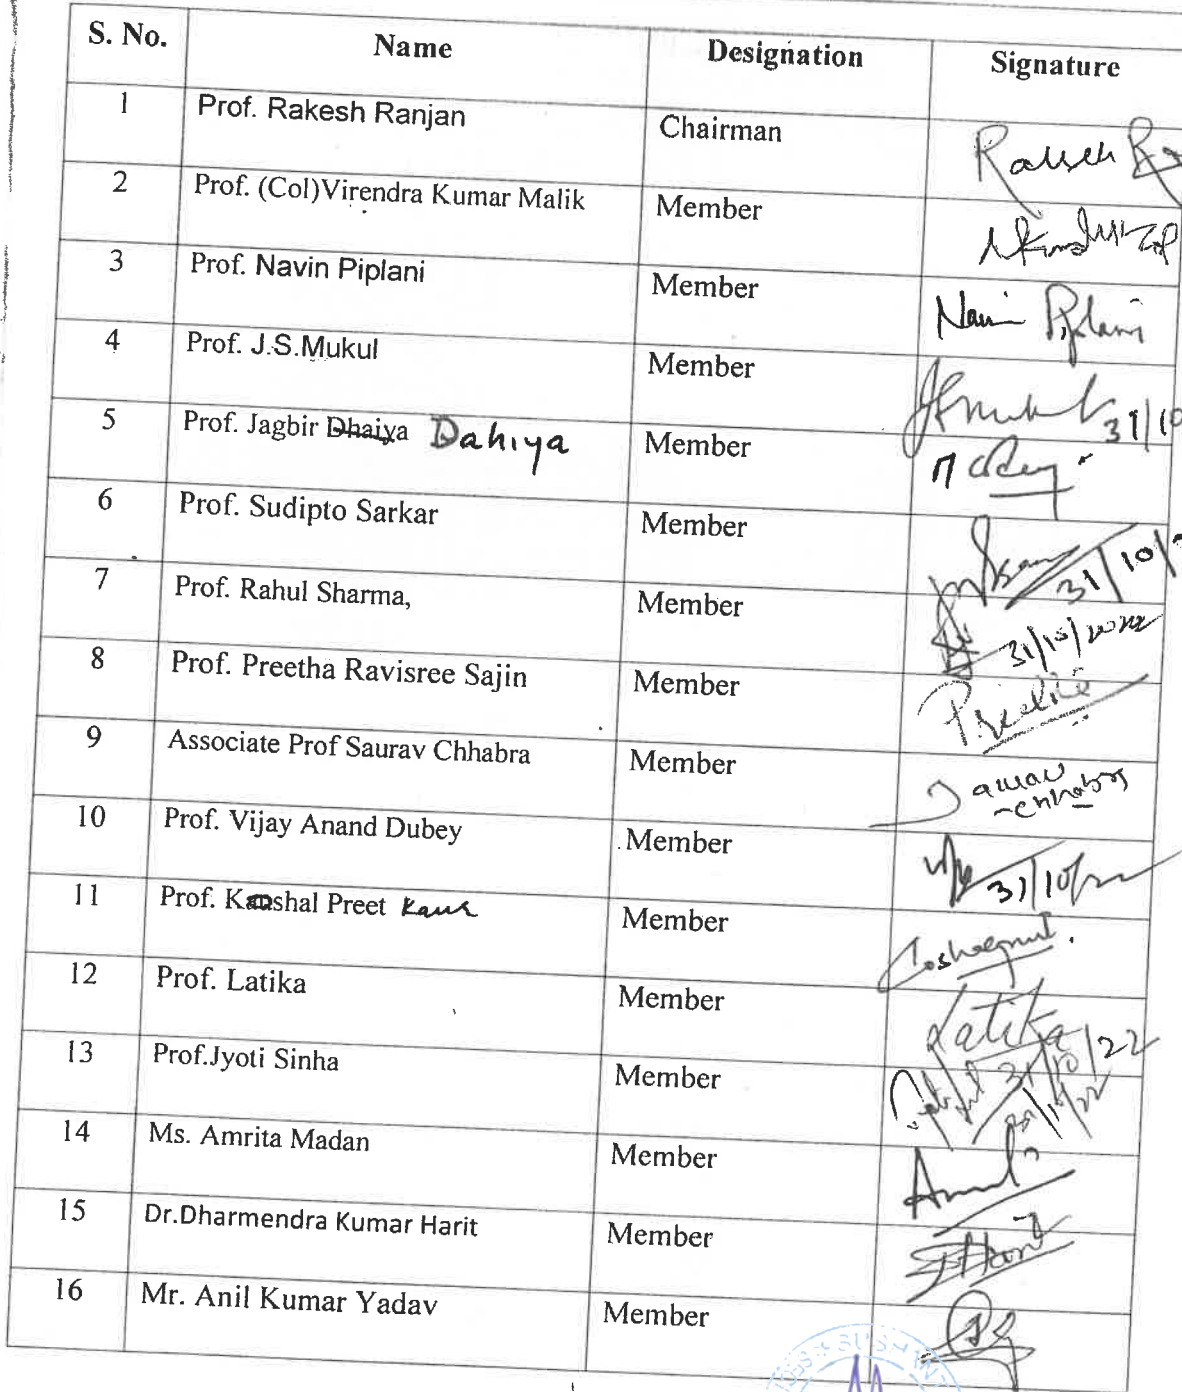 S. No. Name Designation Signature
1 Prof. Rakesh Ranjan Chairman Rakesh
2 Prof. (Col)Virendra Kumar Malik Member
3 Prof. Navin Piplani Member Navin Piplani
4 Prof. J.S.Mukul Member JSMukul 31/10
5 Prof. Jagbir Dhaiya Dahiya Member
6 Prof. Sudipto Sarkar Member 31/10/
7 Prof. Rahul Sharma, Member 31/10/2022
8 Prof. Preetha Ravisree Sajin Member
9 Associate Prof Saurav Chhabra Member Saurav
Chhabra
10 Prof. Vijay Anand Dubey Member 31/10/22
11 Prof. Kaushal Preet Kaur Member
12 Prof. Latika Member Latika
31/10/22
13 Prof.Jyoti Sinha Member
14 Ms. Amrita Madan Member
15 Dr.Dharmendra Kumar Harit Member Harit
16 Mr. Anil Kumar Yadav Member
SUSHANT